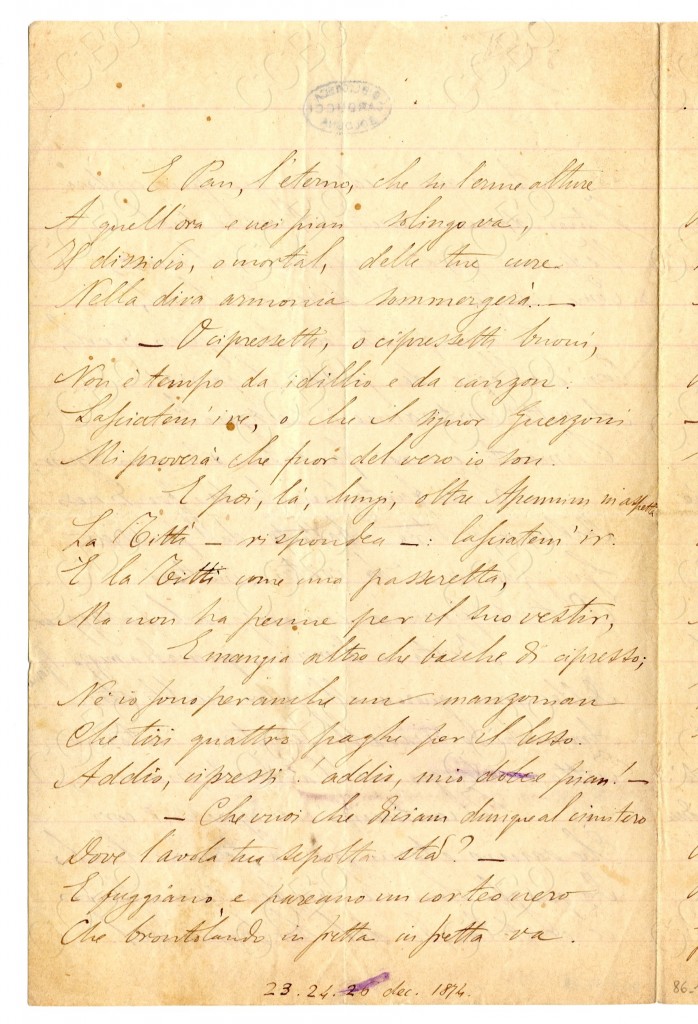 E Pan, l'eterno, che su l'erme alture
A quell'ora e nei pian solingo va,
Il dissidio, o mortal, delle tue cure
Nella diva armonia sommergerà. —
— O cipressetti, o cipressetti buoni,
Non è tempo da idillio e da canzon.
Lasciatem'ire, o che il signor Guerzoni
Mi proverà che fuor del vero io son.
E poi, là, lungi, oltre Apennin m'aspetta
La Titti — rispondea —: lasciatem'ir.
È la Titti come una passeretta,
Ma non ha penne per il suo vestir,
E mangia altro che bacche di cipresso;
Nè io sono per anche un manzonian
Che tiri quattro paghe per il lesso.
Addio, cipressi! addio, mio dolce pian! —
— Che vuoi che diciam dunque al cimitero
Dove l'avola tua sepolta stà? —
E fuggìano, e pareano un corteo nero
Che brontolando in fretta in fretta va.
23. 24. 26 dec. 1874.
86